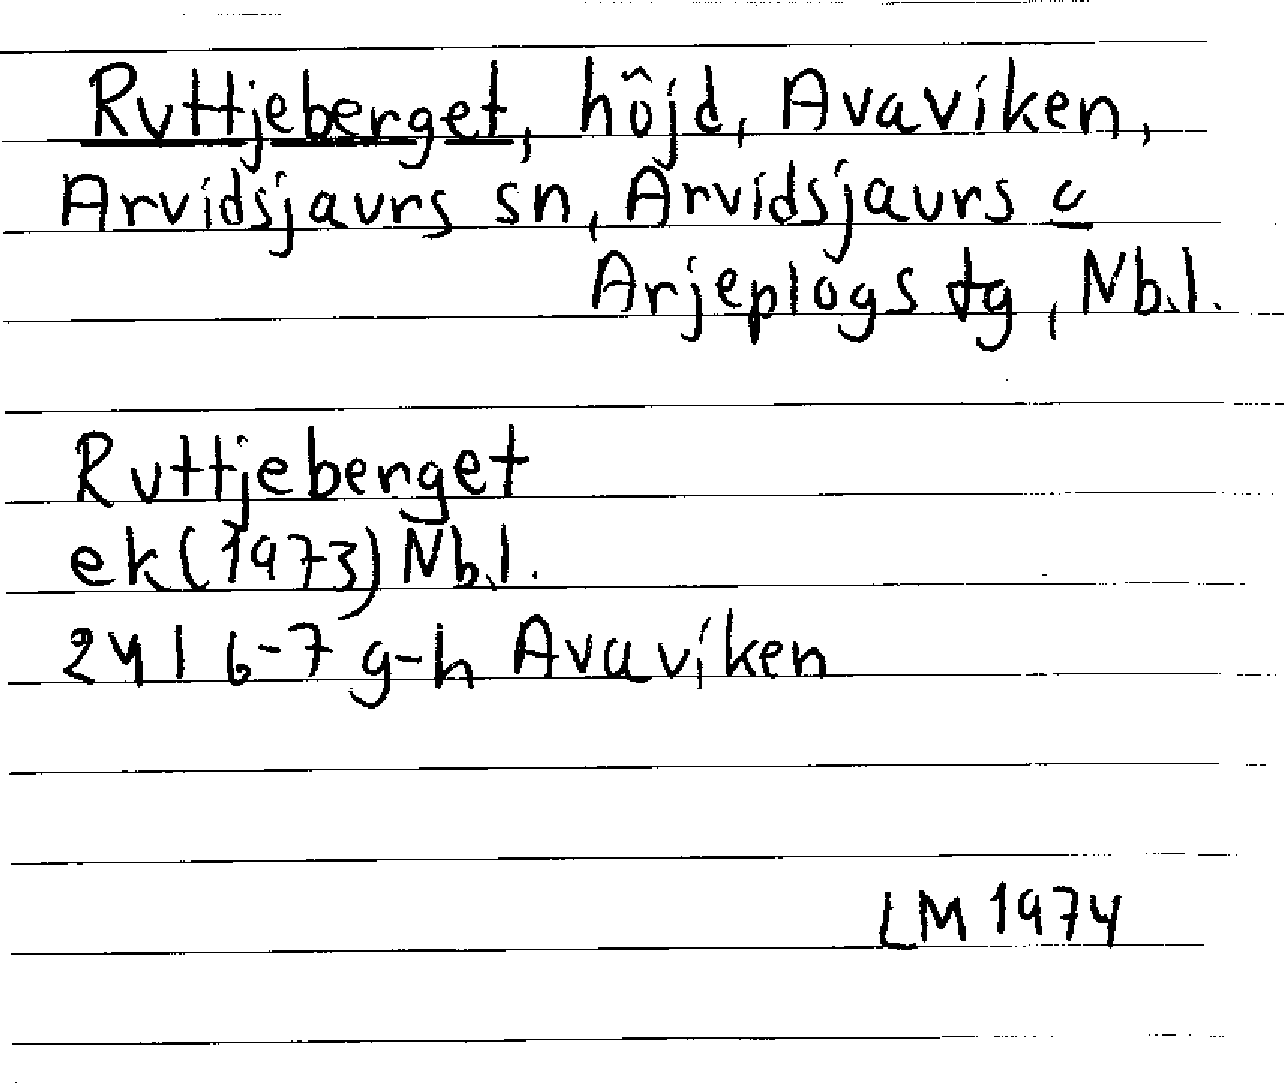 Ruttjeberget, höjd, Avaviken,
Arvidsjaurs sn, Arvidsjaurs o
Arjeplogs tg, Nb.l.
Ruttjeberget
ek (1973) Nb.l.
24I 6-7 g-h Avaviken
LM 1974